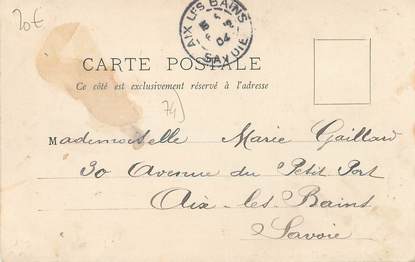 20€
AIX LES BAINS
04
SAVOIE
CARTE POSTALE
Ce côté est exclusivement réservé à l'adresse
74)
Mademoiselle Marie Gaillard
30 Avenue du Petit Port
Aix-les-Bains
Savoie